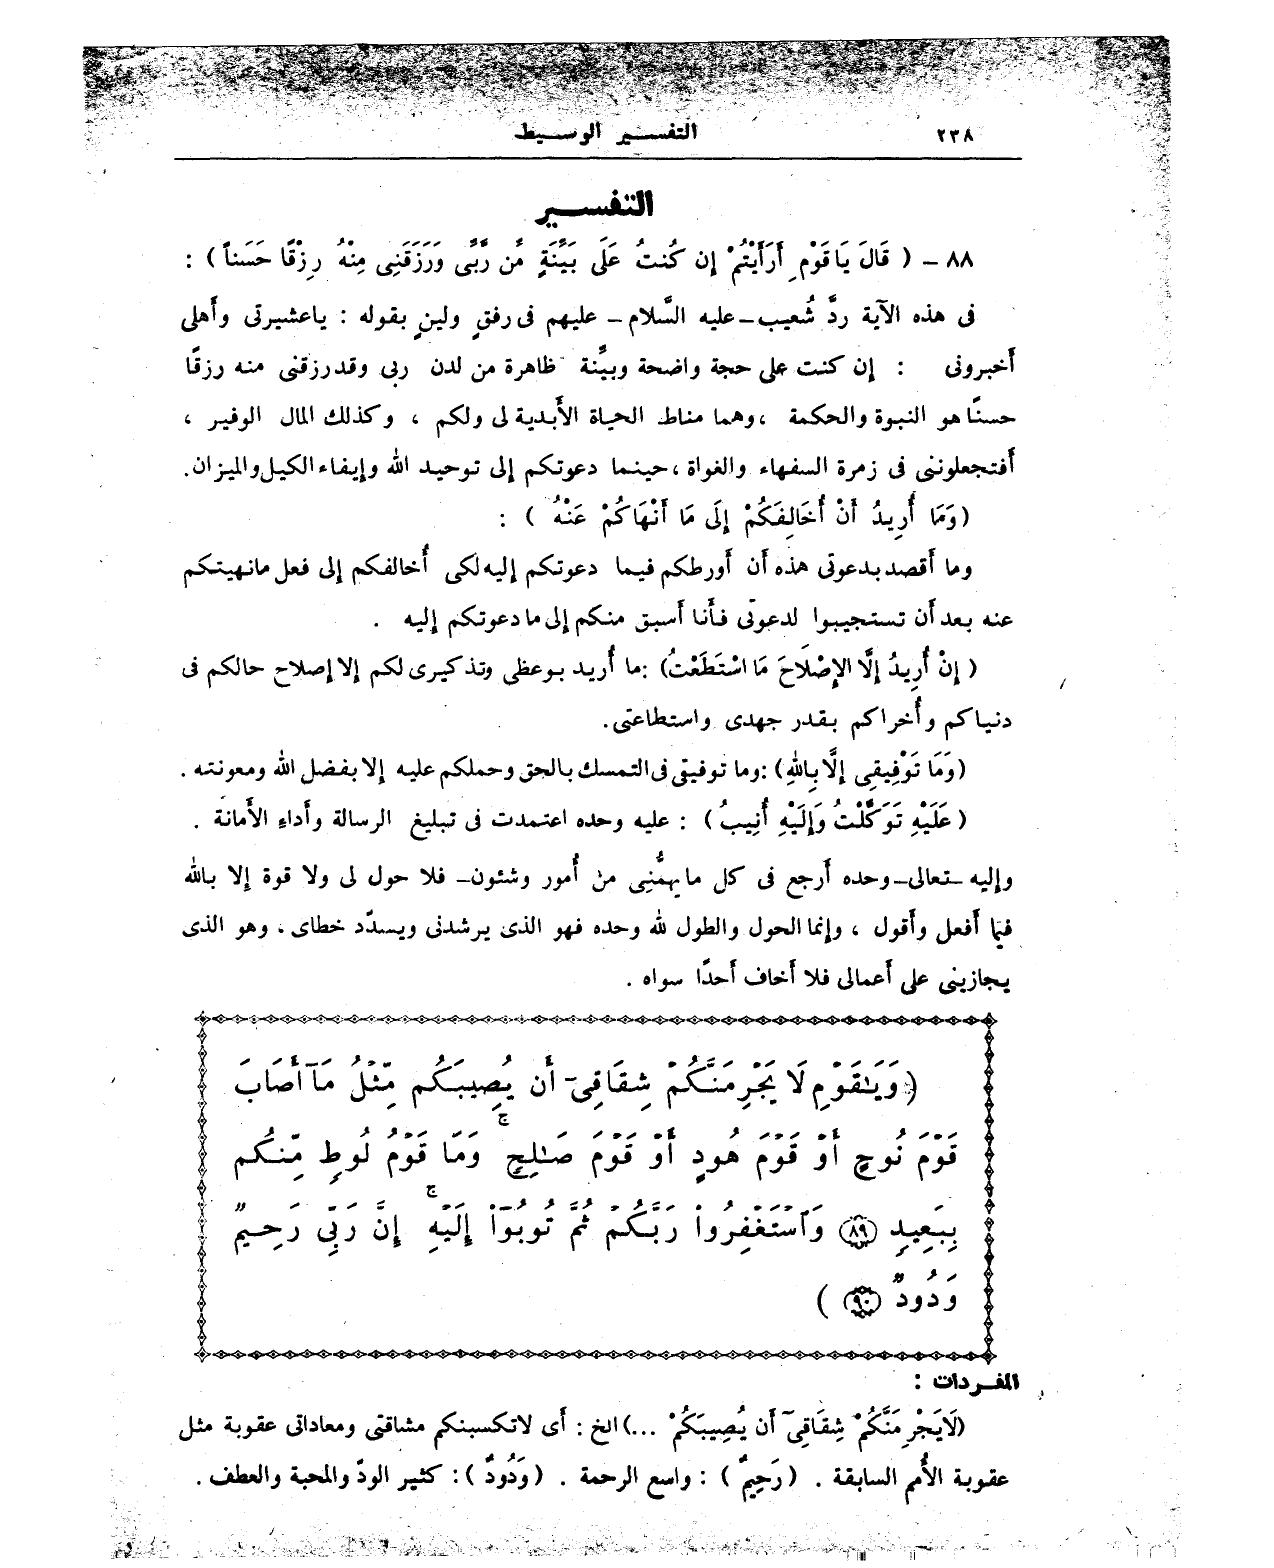 ٢٣٨ التفسير الوسيط
التفسير
٨٨ - ( قَالَ يَا قَوْمِ أَرَأَيْتُمْ إِن كُنتُ عَلَى بَيِّنَةٍ مِّن رَّبِّى وَرَزَقَنِى مِنْهُ رِزْقًا حَسَناً ) :
فى هذه الآية ردَّ شُعيب - عليه السَّلام - عليهم فى رفقٍ ولينٍ بقوله : ياعشيرتى وأَهلى
أَخبرونى : إن كنت على حجة واضحة وبيِّنة ظاهرة من لدن ربى وقدرزقنى منه رزقًا
حسنًا هو النبوة والحكمة ، وهما مناط الحياة الأَبدية لى ولكم ، وكذلك المال الوفير ،
أَفتجعلوننى فى زمرة السفهاء والغواة ، حينما دعوتكم إلى توحيد الله وإيفاء الكيل والميزان.
( وَمَا أُرِيدُ أَنْ أُخَالِفَكُمْ إِلَى مَا أَنْهَاكُمْ عَنْهُ ) :
وما أَقصد بدعوتى هذه أَن أُورطكم فيما دعوتكم إليه لكى أُخالفكم إلى فعل مانهيتكم
عنه بعد أَن تستجيبوا لدعوتى فأَنا أَسبق منكم إلى ما دعوتكم إليه .
( إِنْ أُرِيدُ إِلَّا الإِصْلَاحَ مَا اسْتَطَعْتُ) :ما أُريد بوعظى وتذكيرى لكم إلا إصلاح حالكم فى
دنياكم وأُخراكم بقدر جهدى واستطاعتى.
(وَمَا تَوْفِيقِى إِلَّا بِاللهِ) :وما توفيقى فى التمسك بالحق وحملكم عليه إلا بفضل الله ومعونته .
( عَلَيْهِ تَوَكَّلْتُ وَإِلَيْهِ أُنِيبُ ) : عليه وحده اعتمدت فى تبليغ الرسالة وأَداءِ الأَمانة .
وإليه -تعالى- وحده أَرجع فى كل ما يهمُّنِى من أُمور وشئون- فلا حول لى ولا قوة إلا بالله
فيما أَفعل وأَقول ، وإنما الحول والطول لله وحده فهو الذى يرشدنى ويسدّد خطاى ، وهو الذى
يجازينى على أَعمالى فلا أَخاف أَحدًا سواه .
( وَيَـٰقَوْمِ لَا يَجْرِمَنَّكُمْ شِقَاقِىٓ أَن يُصِيبَكُم مِّثْلُ مَآ أَصَابَ
قَوْمَ نُوحٍ أَوْ قَوْمَ هُودٍ أَوْ قَوْمَ صَـٰلِحٍ ۚ وَمَا قَوْمُ لُوطٍ مِّنكُم
بِبَعِيدٍ ﴿٨٩﴾ وَٱسْتَغْفِرُوا۟ رَبَّكُمْ ثُمَّ تُوبُوٓا۟ إِلَيْهِ ۚ إِنَّ رَبِّى رَحِيمٌ
وَدُودٌ ﴿٩٠﴾ )
المفردات :
(لَايَجْرِمَنَّكُمْ شِقَاقِىٓ أَن يُصِيبَكُمْ ...) الخ : أَى لاتكسبنكم مشاقتى ومعاداتى عقوبة مثل
عقوبة الأُمم السابقة . ( رَحِيمٌ ) : واسع الرحمة . ( وَدُودٌ ) : كثير الودّ والمحبة والعطف .